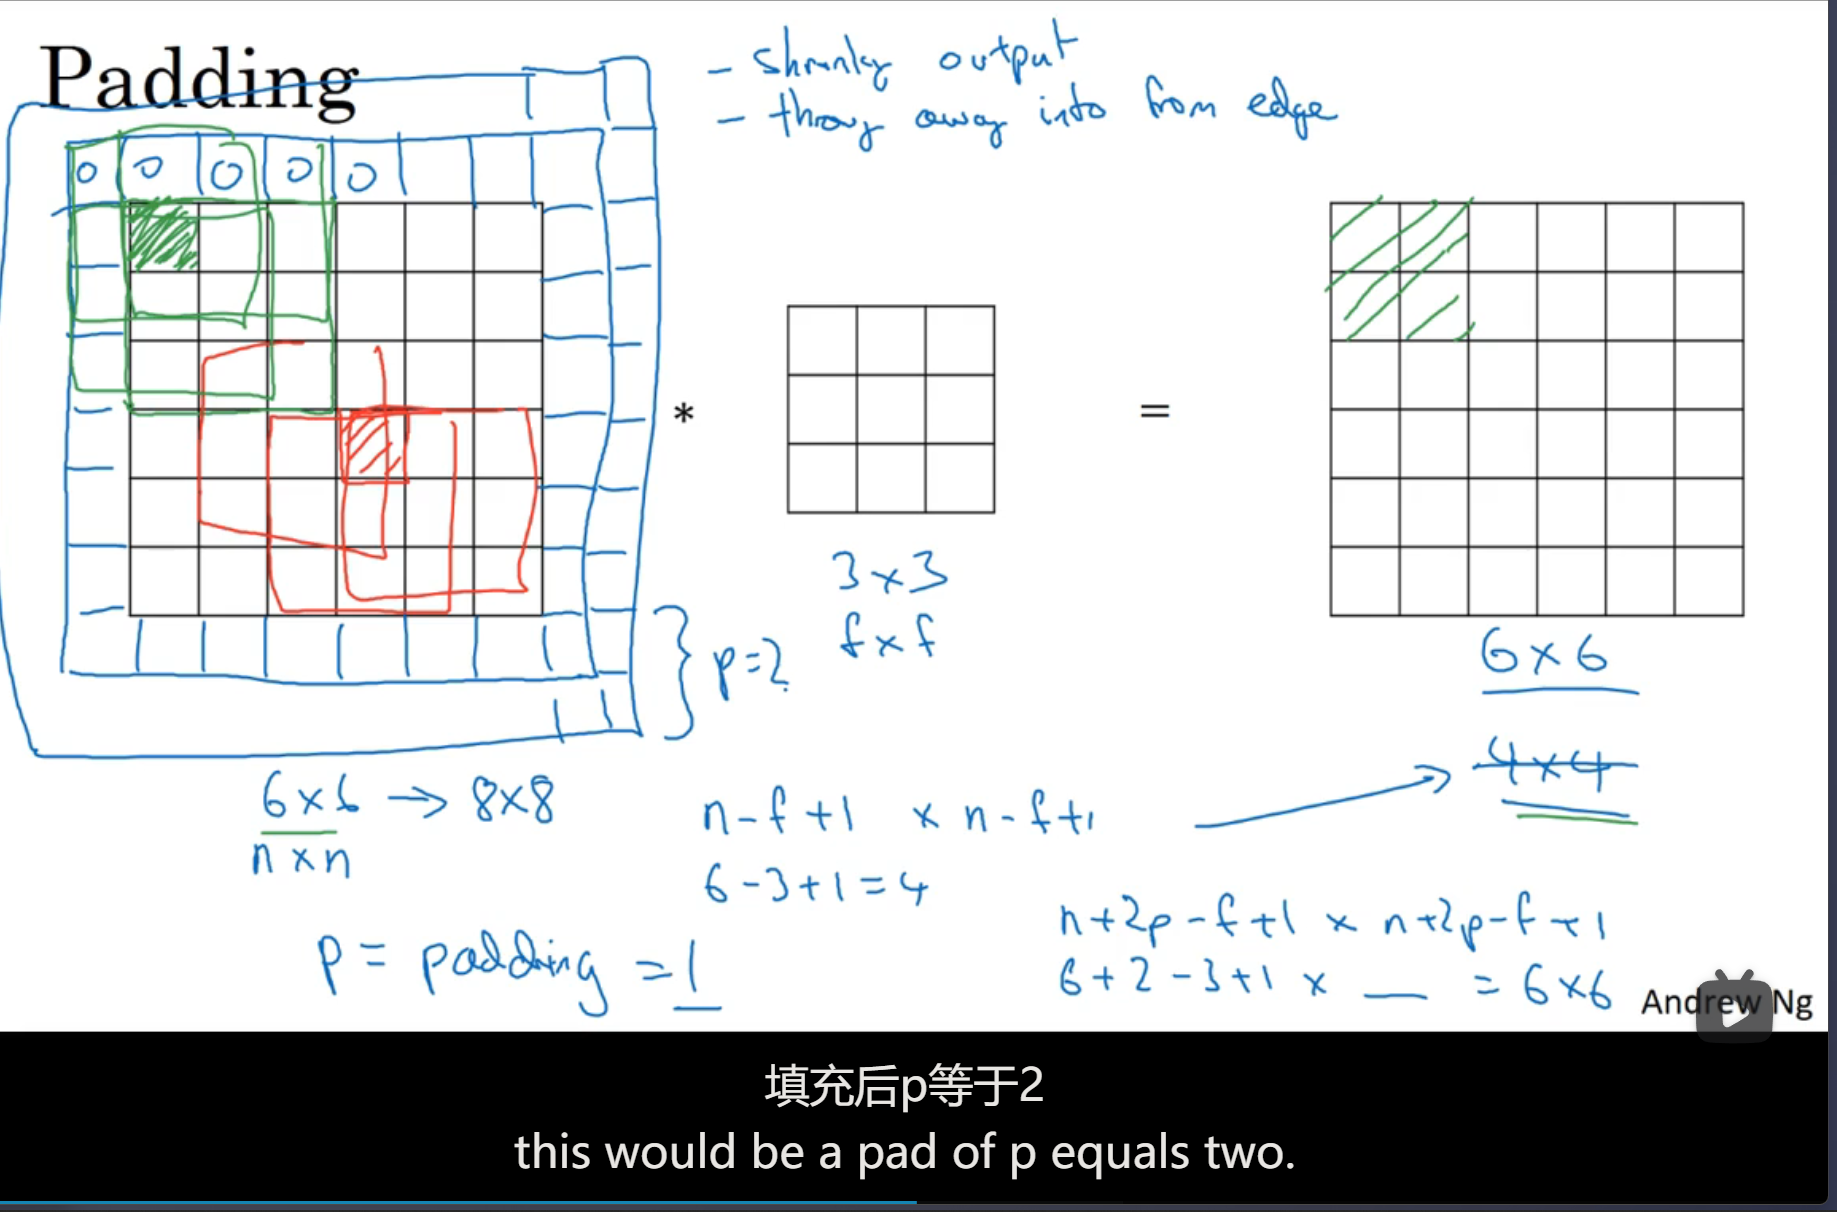 Padding
- shrinky output
- throy away into from edge
0 0 0 0 0
*
=
3 x 3
f x f
p=2
6 x 6
4 x 4
6 x 6 → 8 x 8
n x n
n - f + 1 x n - f + 1
6 - 3 + 1 = 4
p = padding = 1
n + 2p - f + 1 x n + 2p - f + 1
6 + 2 - 3 + 1 x __ = 6 x 6
Andrew Ng
填充后p等于2
this would be a pad of p equals two.